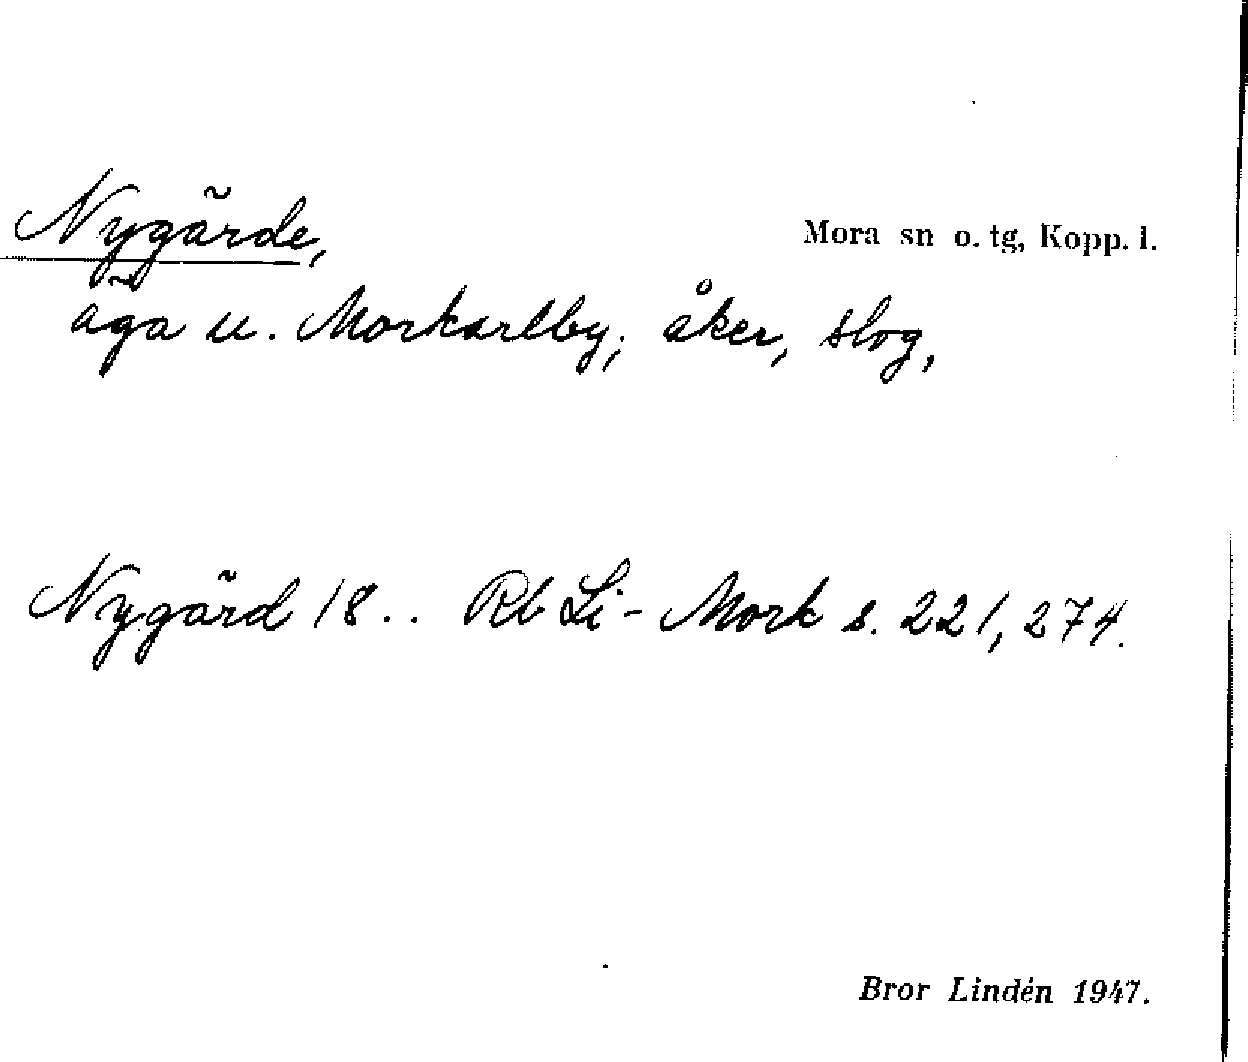 Nygärde,
Mora sn o. tg, Kopp. l.
äga u. Morkarlby; åker, slog,
Nygärd 18.. Rb Li-Mork s. 221, 274.
Bror Lindén 1947.